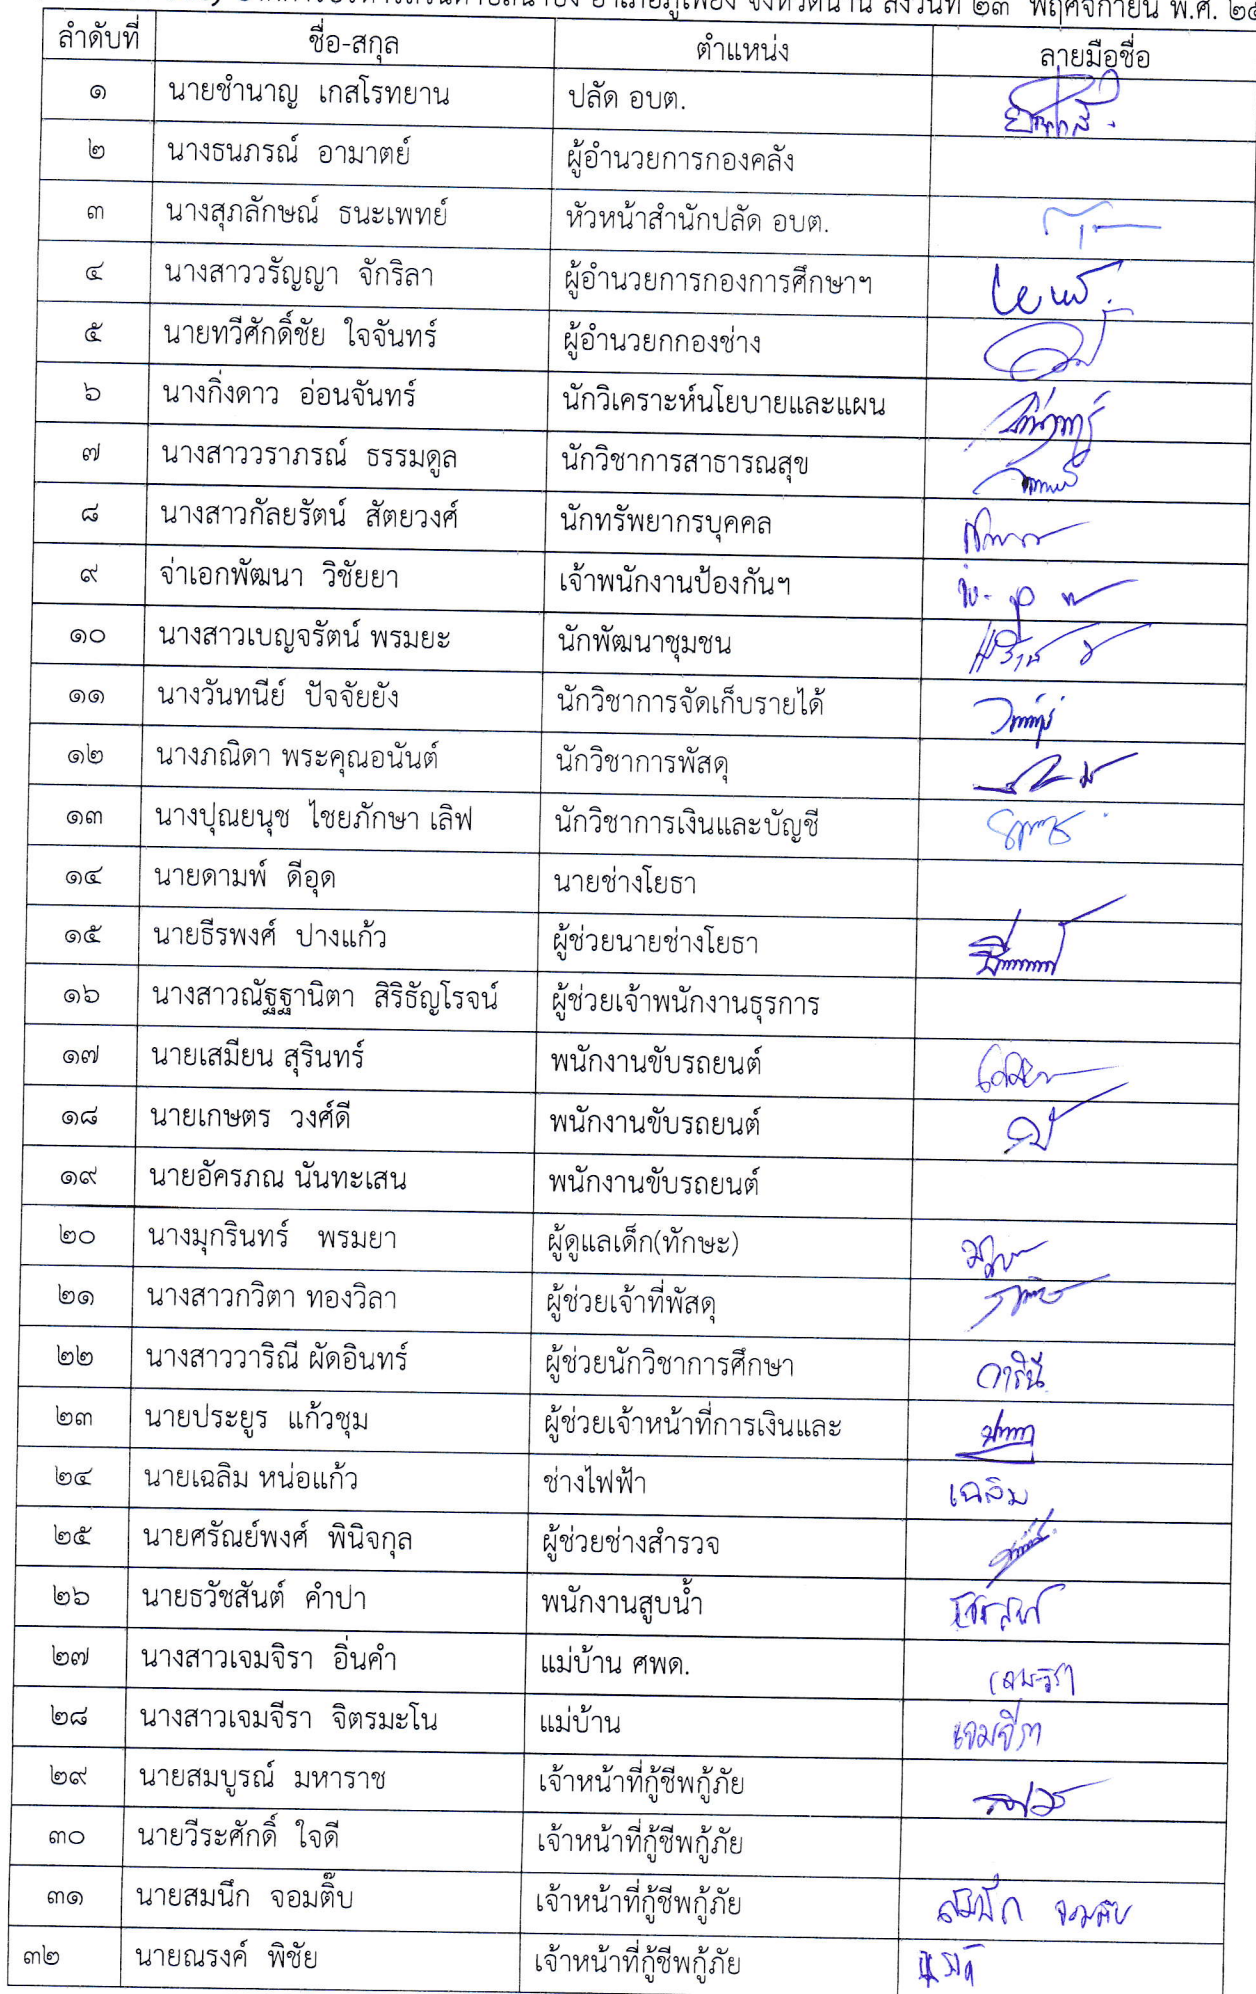 อำเภอภูเพียง จังหวัดน่าน ลงวันที่ ๒๓ พฤศจิกายน พ.ศ.
ลำดับที่ ชื่อ-สกุล ตำแหน่ง ลายมือชื่อ
๑ นายชำนาญ เกสโรทยาน ปลัด อบต.
๒ นางธนภรณ์ อามาตย์ ผู้อำนวยการกองคลัง
๓ นางสุภลักษณ์ ธนะเพทย์ หัวหน้าสำนักปลัด อบต.
๔ นางสาววรัญญา จักริลา ผู้อำนวยการกองการศึกษาฯ
๕ นายทวีศักดิ์ชัย ใจจันทร์ ผู้อำนวยกกองช่าง
๖ นางกิ่งดาว อ่อนจันทร์ นักวิเคราะห์นโยบายและแผน
๗ นางสาววราภรณ์ ธรรมดูล นักวิชาการสาธารณสุข
๘ นางสาวกัลยรัตน์ สัตยวงศ์ นักทรัพยากรบุคคล
๙ จ่าเอกพัฒนา วิชัยยา เจ้าพนักงานป้องกันฯ
๑๐ นางสาวเบญจรัตน์ พรมยะ นักพัฒนาชุมชน
๑๑ นางวันทนีย์ ปัจจัยยัง นักวิชาการจัดเก็บรายได้
๑๒ นางภณิดา พระคุณอนันต์ นักวิชาการพัสดุ
๑๓ นางปุณยนุช ไชยภักษา เลิฟ นักวิชาการเงินและบัญชี
๑๔ นายดามพ์ ดีอุด นายช่างโยธา
๑๕ นายธีรพงศ์ ปางแก้ว ผู้ช่วยนายช่างโยธา
๑๖ นางสาวณัฐฐานิตา สิริธัญโรจน์ ผู้ช่วยเจ้าพนักงานธุรการ
๑๗ นายเสมียน สุรินทร์ พนักงานขับรถยนต์
๑๘ นายเกษตร วงศ์ดี พนักงานขับรถยนต์
๑๙ นายอัครภณ นันทะเสน พนักงานขับรถยนต์
๒๐ นางมุกรินทร์ พรมยา ผู้ดูแลเด็ก(ทักษะ)
๒๑ นางสาวกวิตา ทองวิลา ผู้ช่วยเจ้าที่พัสดุ
๒๒ นางสาววาริณี ผัดอินทร์ ผู้ช่วยนักวิชาการศึกษา วาริณี
๒๓ นายประยูร แก้วชุม ผู้ช่วยเจ้าหน้าที่การเงินและ
๒๔ นายเฉลิม หน่อแก้ว ช่างไฟฟ้า เฉลิม
๒๕ นายศรัณย์พงศ์ พินิจกุล ผู้ช่วยช่างสำรวจ
๒๖ นายธวัชสันต์ คำปา พนักงานสูบน้ำ
๒๗ นางสาวเจมจิรา อิ่นคำ แม่บ้าน ศพด.
๒๘ นางสาวเจมจีรา จิตรมะโน แม่บ้าน เจมจีรา
๒๙ นายสมบูรณ์ มหาราช เจ้าหน้าที่กู้ชีพกู้ภัย
๓๐ นายวีระศักดิ์ ใจดี เจ้าหน้าที่กู้ชีพกู้ภัย
๓๑ นายสมนึก จอมติ๊บ เจ้าหน้าที่กู้ชีพกู้ภัย สมนึก จอมติ๊บ
๓๒ นายณรงค์ พิชัย เจ้าหน้าที่กู้ชีพกู้ภัย